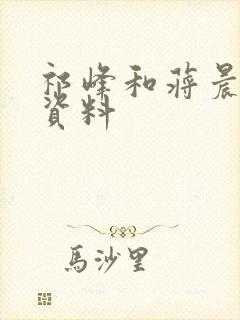 祁峰和蒋晨
资料
馬沙里